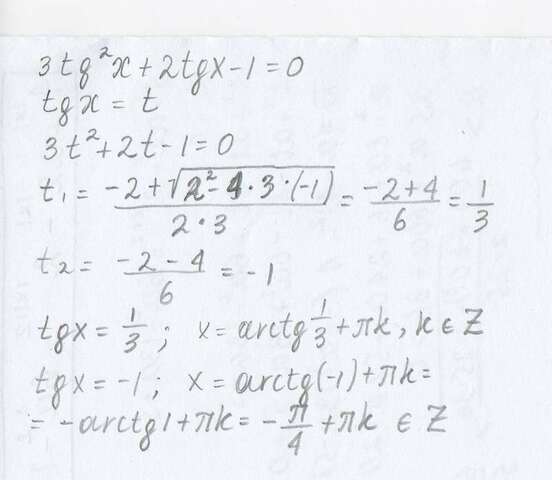 3tg²x+2tgx-1=0
tgx=t
3t²+2t-1=0
t₁= (-2+√(2²-4·3·(-1)))/(2·3) = (-2+4)/6 = 1/3
t₂= (-2-4)/6 = -1
tgx=1/3; x=arctg 1/3+πk, k∈Z
tgx=-1; x=arctg(-1)+πk=
=-arctg1+πk=-π/4+πk ∈Z